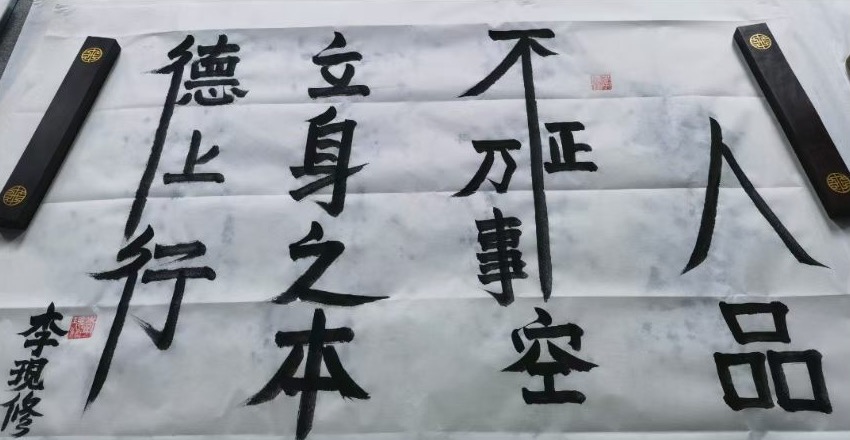 人品
不正万事空
立身之本
德上行
李现修